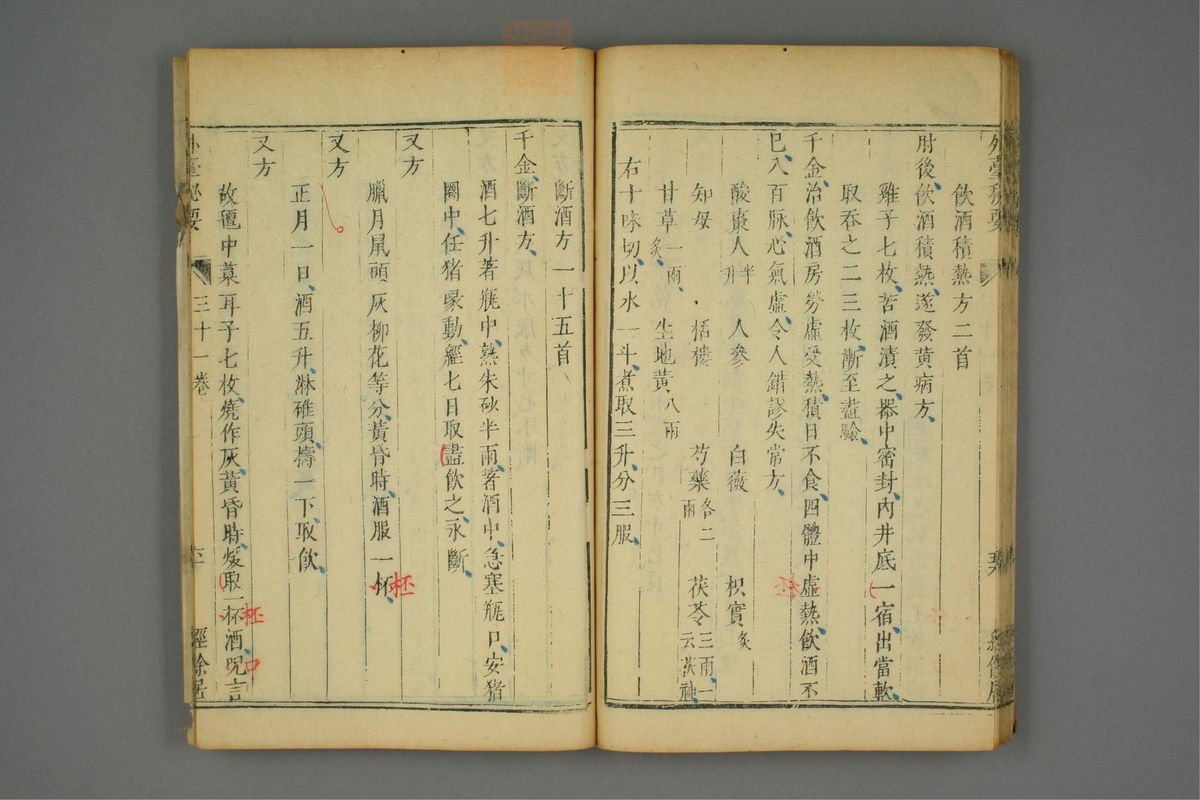 飲酒積熱方二首
肘後飲酒積熱遂發黃病方
雞子七枚苦酒漬之器中密封內井底一宿出當軟
取吞之二三枚漸至盡驗
千金治飲酒房勞虛受熱積日不食四體中虛熱飲酒不
已入百脉心氣虛令人錯謬失常方
酸棗人半升 人參 白薇 枳實炙
知母 栝樓 芍藥各二兩 茯苓三兩一云茯神
甘草一兩炙 生地黃八兩
右十味切以水一斗煮取三升分三服
外臺秘要
斷酒方一十五首
千金斷酒方
酒七升著瓶中熟朱砂半兩著酒中急塞瓶口安猪
圈中任猪揺動經七日取盡飲之永斷
又方
臘月鼠頭灰柳花等分黃昏時酒服一杯
杯
又方
正月一日酒五升淋碓頭擣一下取飲
又方
故氊中菜耳子七枚燒作灰黃昏時煖取一杯酒呪言
杯
口
外臺秘要 三十一卷 經餘居